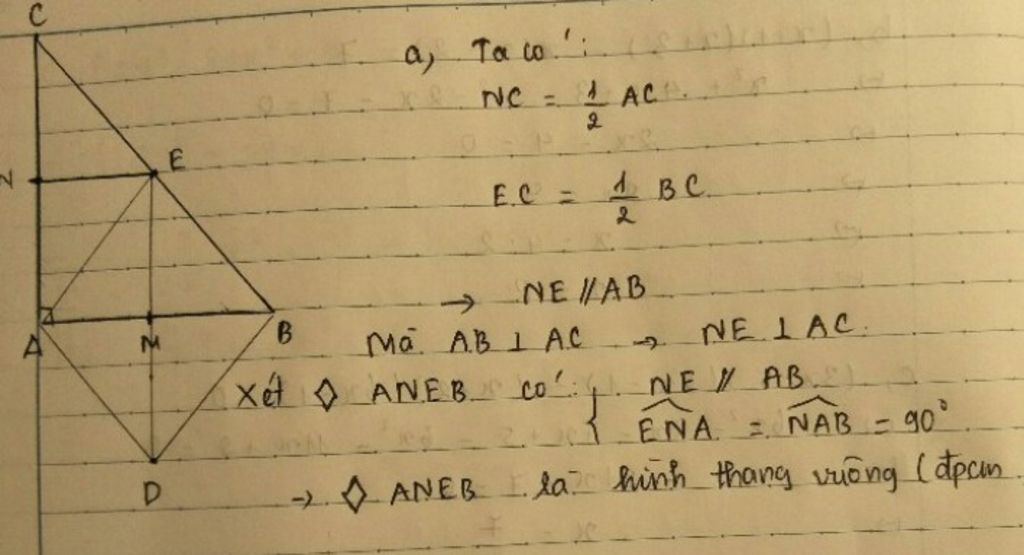 C
a, Ta có:
NC = 1/2 AC
E
N
EC = 1/2 BC
→ NE // AB
A
M
B
Mà AB ⊥ AC → NE ⊥ AC
Xét ◇ ANEB có: { NE // AB
ENA = NAB = 90°
D
→ ◇ ANEB là hình thang vuông (đpcm